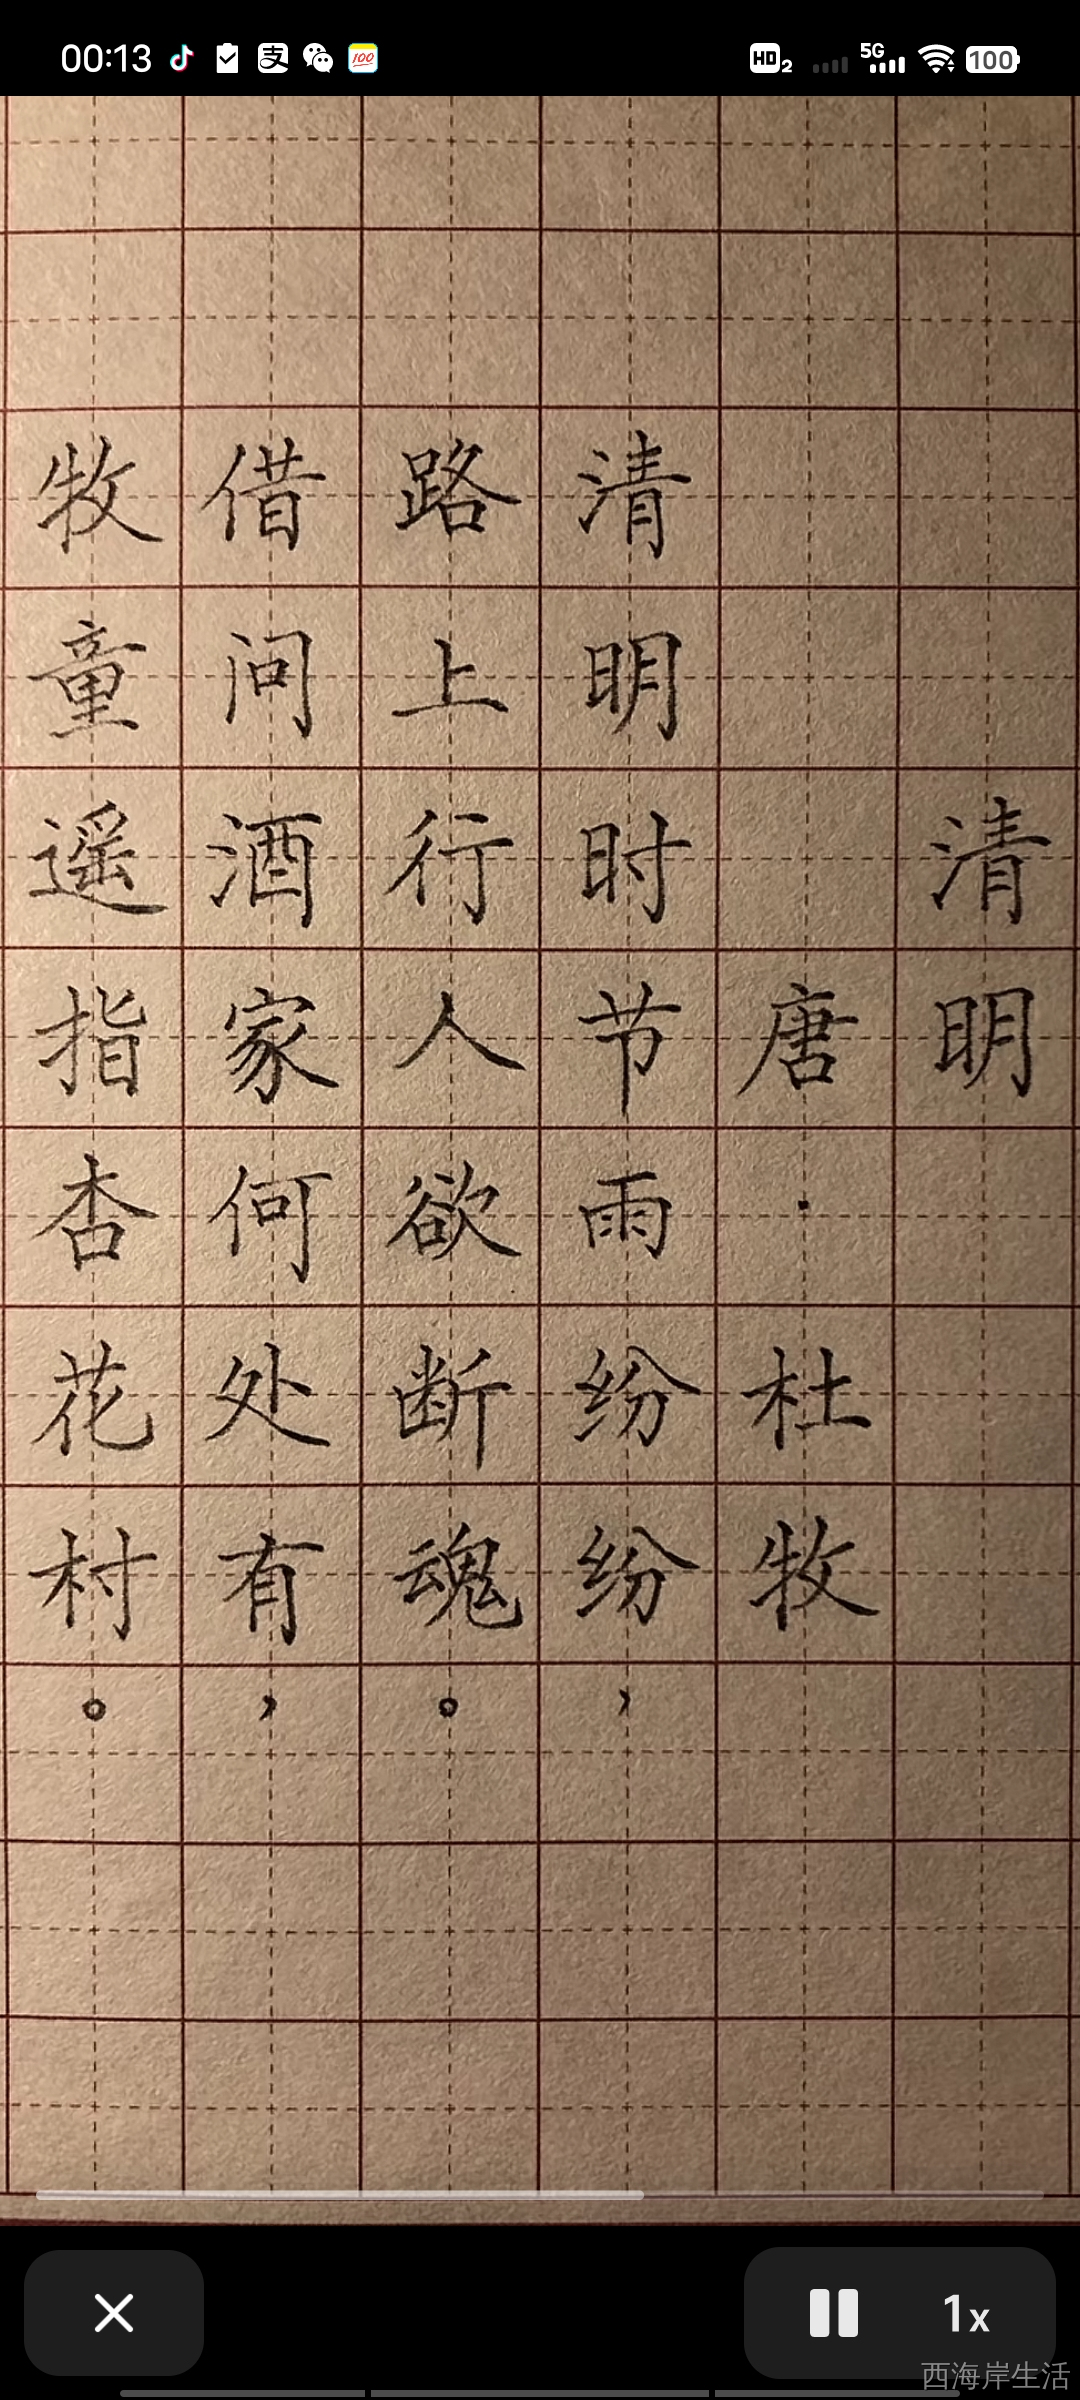 00:13
HD2 5G 100
清明
唐·杜牧
清明时节雨纷纷，
路上行人欲断魂。
借问酒家何处有，
牧童遥指杏花村。
1x
西海岸生活